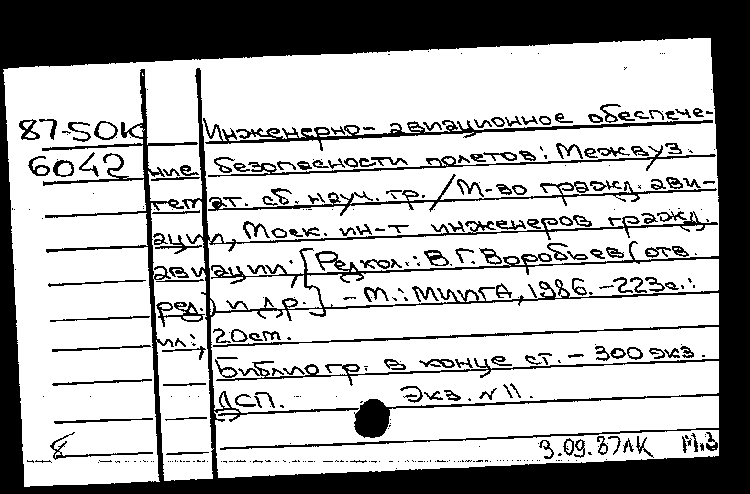 87-50К Инженерно-авиационное обеспече-
6042 ние безопасности полетов: Межвуз.
темат. сб. науч. тр. / М-во гражд. ави-
ации, Моск. ин-т инженеров гражд.
авиации; [Редкол.: В.Г. Воробьев (отв.
ред.) и др.]. - М.: МИИГА, 1986. - 223 с.:
ил.; 20 см.
Библиогр. в конце ст. - 300 экз.
ДСП. Экз. N 11.
8 3.09.87 ЛК М.З